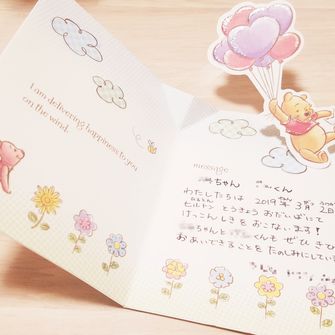 I am delivering happiness to you
on the wind.
message
ちゃん くん
わたしたちは 2019年3月2日
ヒルトン とうきょう おだいばにて
けっこんしきを おこないます!
ちゃんと くんも ぜひ
おあいできることを たのしみにしてい